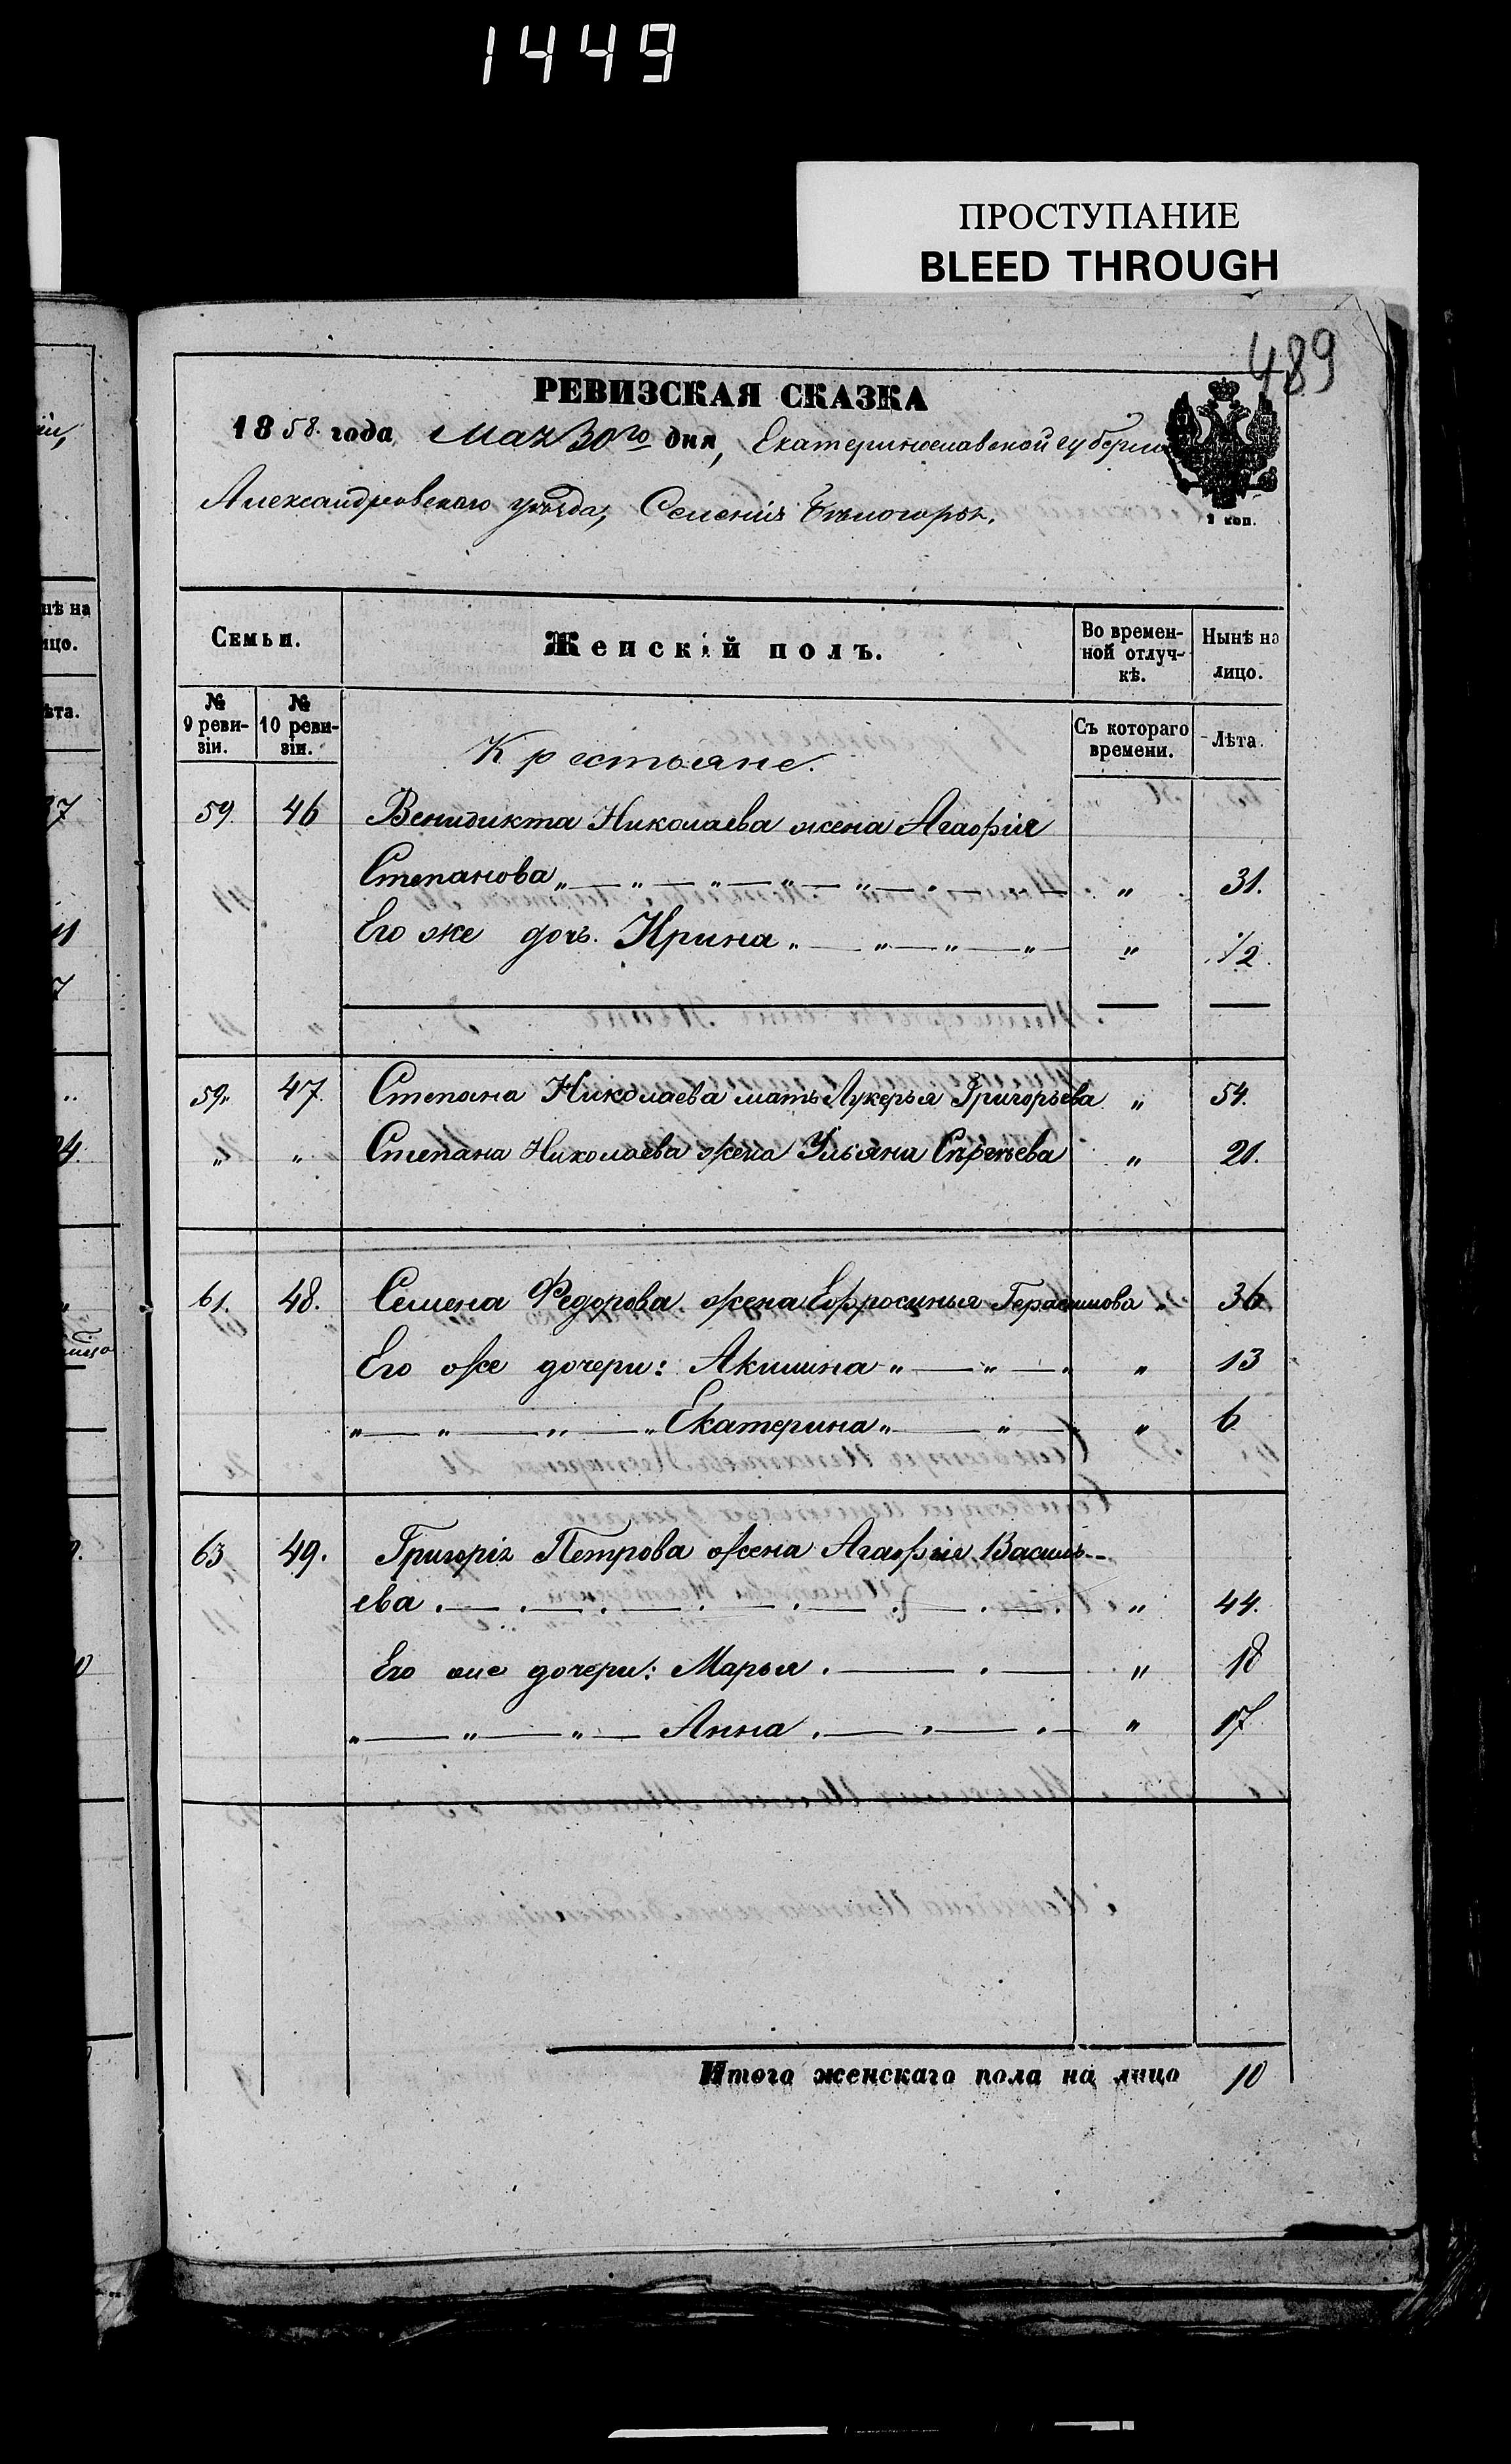 1449
ПРОСТУПАНИЕ
BLEED THROUGH
489
РЕВИЗСКАЯ СКАЗКА
1858. года Мая 30го дня, Екатеринославской губерніи
1 коп.
Александровского уѣзда, Селенія Бѣлогорья.
Семьи.
Женскій полъ.
Во времен-
ной отлуч-
кѣ.
Нынѣ на
лицо.
№
9 реви-
зіи.
№
10 реви-
зіи.
Съ котораго
времени.
Лѣта.
Крестьяне.
59. 46 Венидикта Николаева жена Агафія
Степанова „ — „ — „ — „ — „ — „ „ 31.
Его же дочь. Ирина „ — „ — „ — „ „ 1/2.
59. 47. Степана Николаева мать Лукерья Григорьева „ 54.
„ „ Степана Николаева жена Ульяна „ 21.
61. 48. Семена Федорова жена Ефросинья Герасимова „ 36
Его же дочери: Акилина „ — „ — „ „ 13
„ — „ — „ — „ Екатерина „ — „ — „ 6
63 49. Григорія Петрова жена Агафія Василь-
ева . — . — . — . — . — . — . — . „ 44.
Его же дочери: Марья . — . — „ 18
„ — „ — „ — Анна . — . — . — „ 17
Итого женскаго пола на лицо 10